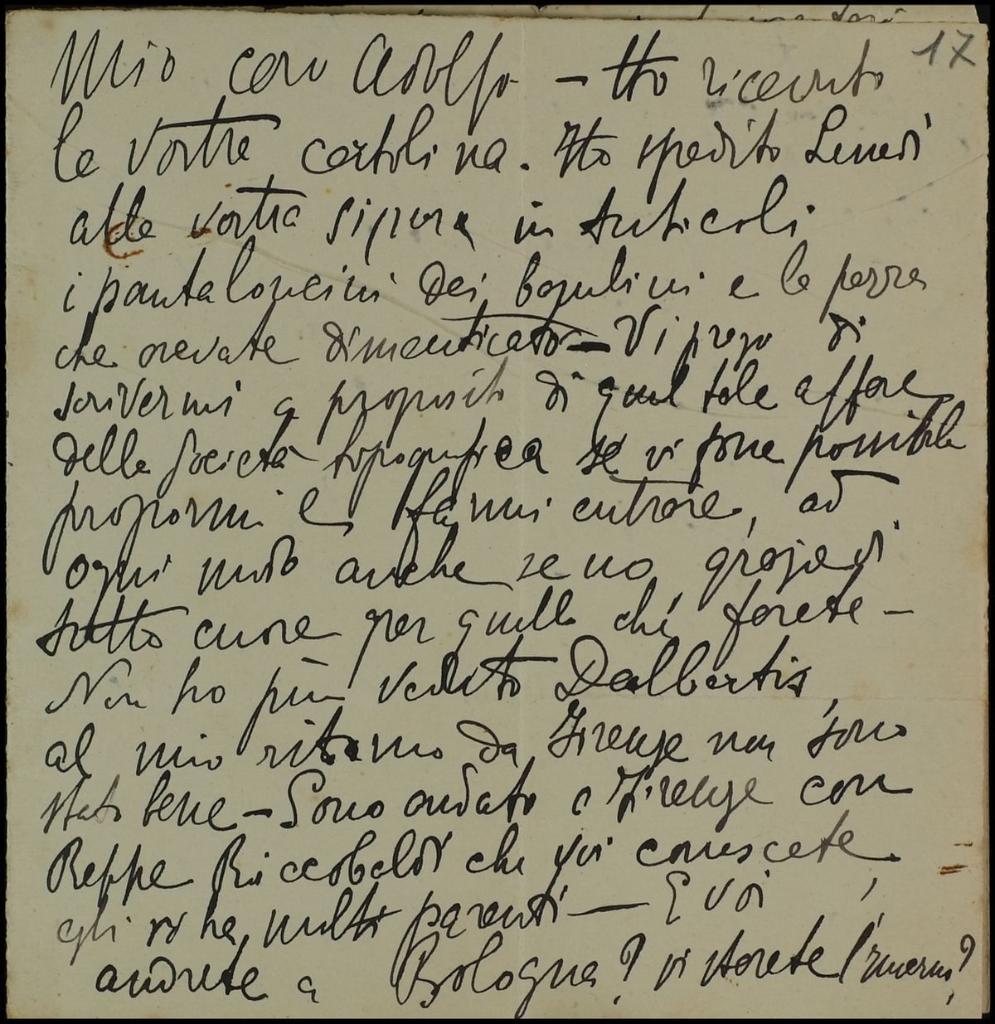 17
Mio caro Adolfo - Ho ricevuto
la vostra cartolina. Ho spedito Lunedì
alla vostra signora in Anticoli
i pantaloncini dei bambini e la
che avevate dimenticato - Vi prego di
scrivermi a proposito di quel tale affare
della Società topografica se vi fosse possibile
propormi e farmi entrare, ad
ogni modo anche se no, grazie di
tutto cuore per quello che farete -
Non ho più veduto Dalbertis,
al mio ritorno da Firenze non sono
stato bene - Sono andato a Firenze con
Beppe Riccobaldi che voi conoscete,
egli vi ha molti parenti - E voi
andrete a Bologna? vi starete l'inverno?